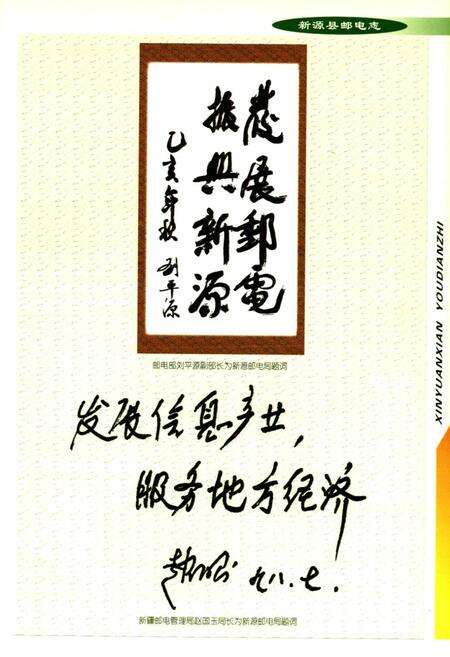 新源县邮电志
發展郵電
振興新源
乙亥年秋 刘平源
邮电部刘平源副部长为新源邮电局题词
发展信息产业，
服务地方经济
赵国玉 九八.七.
新疆邮电管理局赵国玉局长为新源邮电局题词
XINYUANXIAN YOUDIANZHI